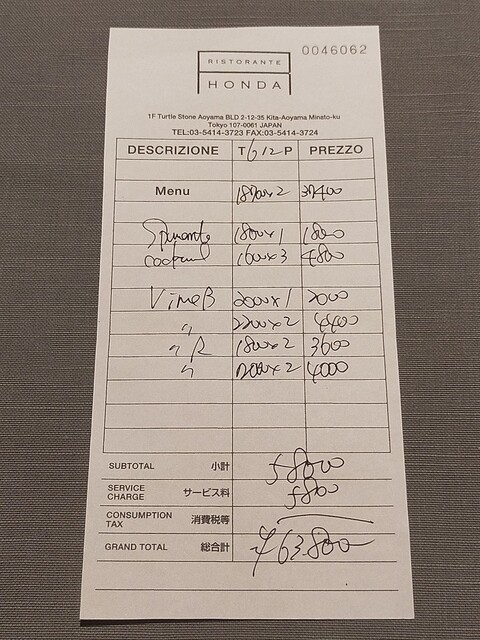 0046062
RISTORANTE
HONDA
1F Turtle Stone Aoyama BLD 2-12-35 Kita-Aoyama Minato-ku
Tokyo 107-0061 JAPAN
TEL:03-5414-3723 FAX:03-5414-3724
DESCRIZIONE T 6 / 2 P PREZZO
Menu 18700×2 37400
Spumante 1800×1 1800
cocktail 1600×3 4800
Vino B 2000×1 2000
〃 2200×2 4400
〃 R 1800×2 3600
〃 2000×2 4000
SUBTOTAL 小計 58000
SERVICE CHARGE サービス料 5800
CONSUMPTION TAX 消費税等
GRAND TOTAL 総合計 ¥63.800-